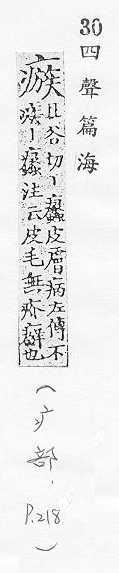 30
四聲篇海
瘯
且谷切丨蠡皮膚病左傳不
疾丨蠡注云皮毛無疥癬也
(疒部, P.218)